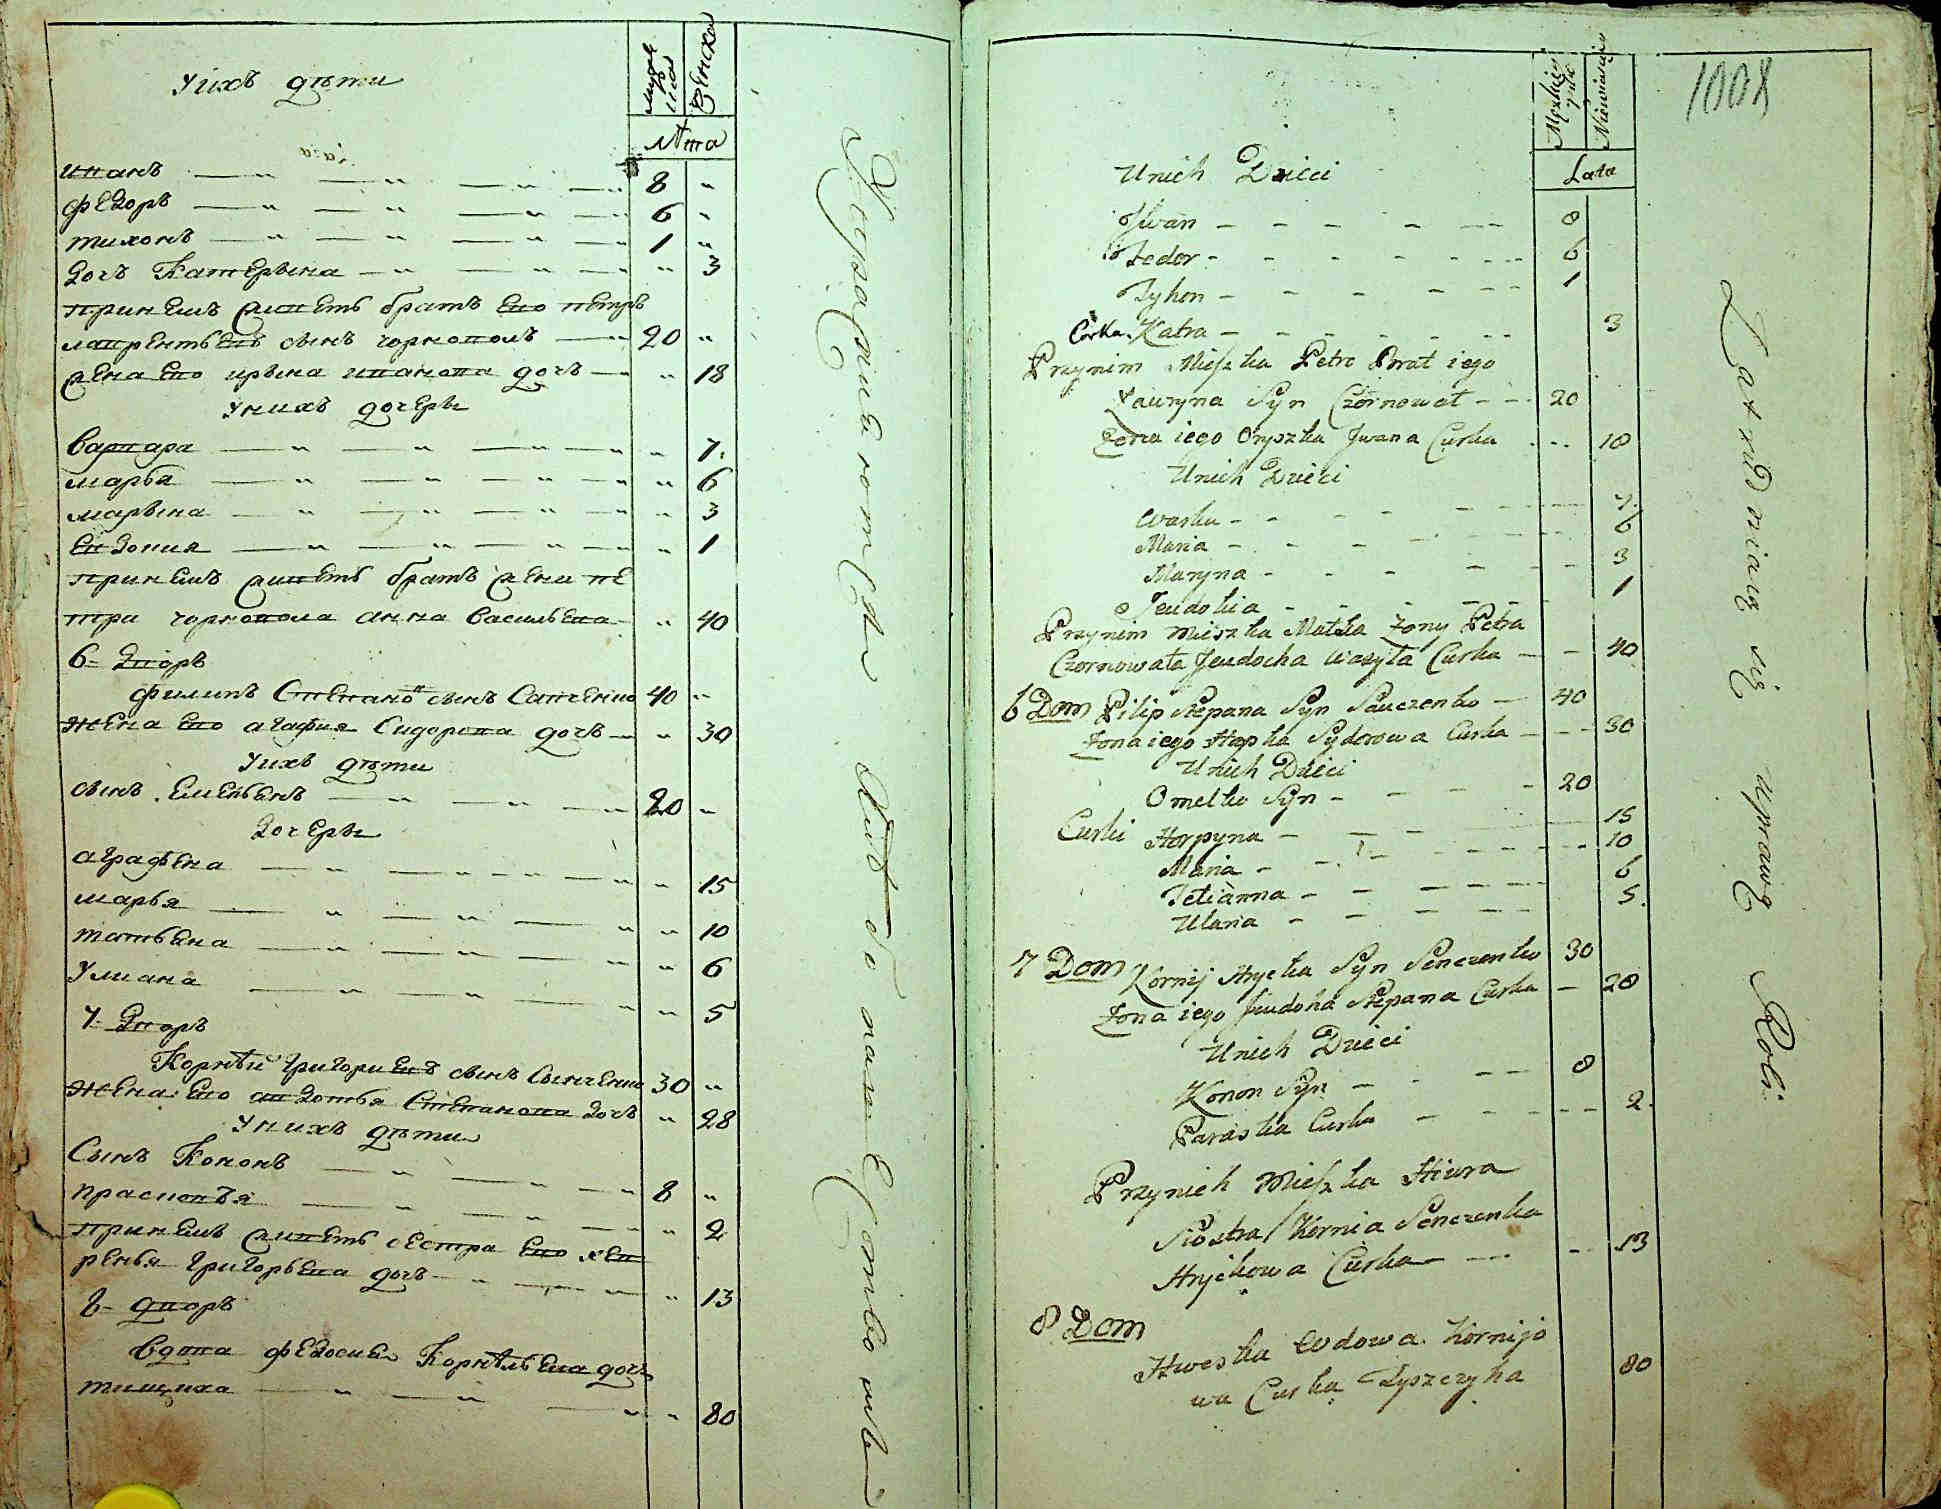 Уихъ дѣти
мужеска
женска
лѣта
иванъ 8 "
федоръ 6 "
тихонъ 1 "
дочъ Катерына " 3
принемъ живетъ братъ его петръ
лаврентьевъ сынъ чорноволъ 20 "
жена его ирына иванова дочъ " 18
Унихъ дочеры
варвара " 7
марья " 6
марына " 3
евдокия " 1
принемъ живетъ братъ жени пе
тра чорновола анна васильева " 40
6 - дворъ
филипъ Степановъ сынъ Савченко 40 "
жена его агафия Сидорова дочъ " 30
Уихъ дѣти
сынъ Емельянъ 20 "
дочеры
аграфена " 15
марья " 10
татьяна " 6
Улиана " 5
7 - дворъ
Корнѣй григориевъ сынъ Сенченко 30 "
жена его авдотья Степанова дочъ " 28
Унихъ дѣти
Сынъ Кононъ 8 "
прасковья " 2
принемъ живетъ сестра его хев
ронья григорьева дочъ " 13
8 - дворъ
вдова федосия Корнѣльева дочъ
тищиха " 80
Упражняются
хлебо пашествомъ
1008
Męzkiey płci
Niewiescey
Lata
Unich Dzieci
Iwan 8
Fedor 6
Tyhon 1
Corka Katra 3
Przynim Mieszka Petro Brat iego
Ławryna Syn Czornowoł 20
Zona iego Oryszka Iwana Curka 18
Unich Dzieci
Warka 7
Maria 6
Maryna 3
Jeudokia 1
Przynim Mieszka Matka Zony Petra
Czornowoła Jeudocha Wasyla Curka 40
6 Dom Pilip Stepana Syn Sauczenko 40
Zona iego Hapka Sydorowa Curka 30
Unich Dzieci
Omelko Syn 20
Curki Horpyna 15
Maria 10
Tetianna 6
Ulana 5
7 Dom Kornij Hrycka Syn Senczenko 30
Zona iego Jeudoha Stepana Curka 28
Unich Dzieci
Konon Syn 8
Paraska Curka 2
Przynich Mieszka Hiwra
Siostra Kornia Senczenka
Hryckowa Curka 13
8 Dom
Hweska Wdowa Kornijo
wa Curka Tyszczycha 80
Zatrudniaią się uprawą Roli